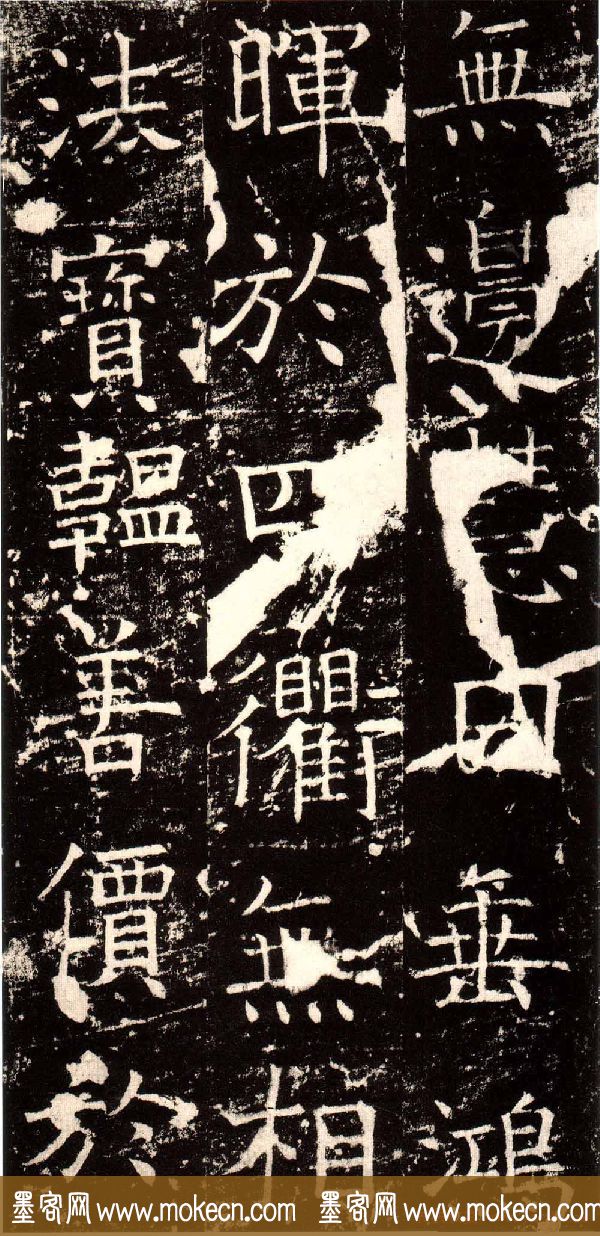 無邊慧日垂鴻
暉於四衢無相
法寶韞善價於
墨客网 www.mokecn.com 墨客网 www.mokecn.com